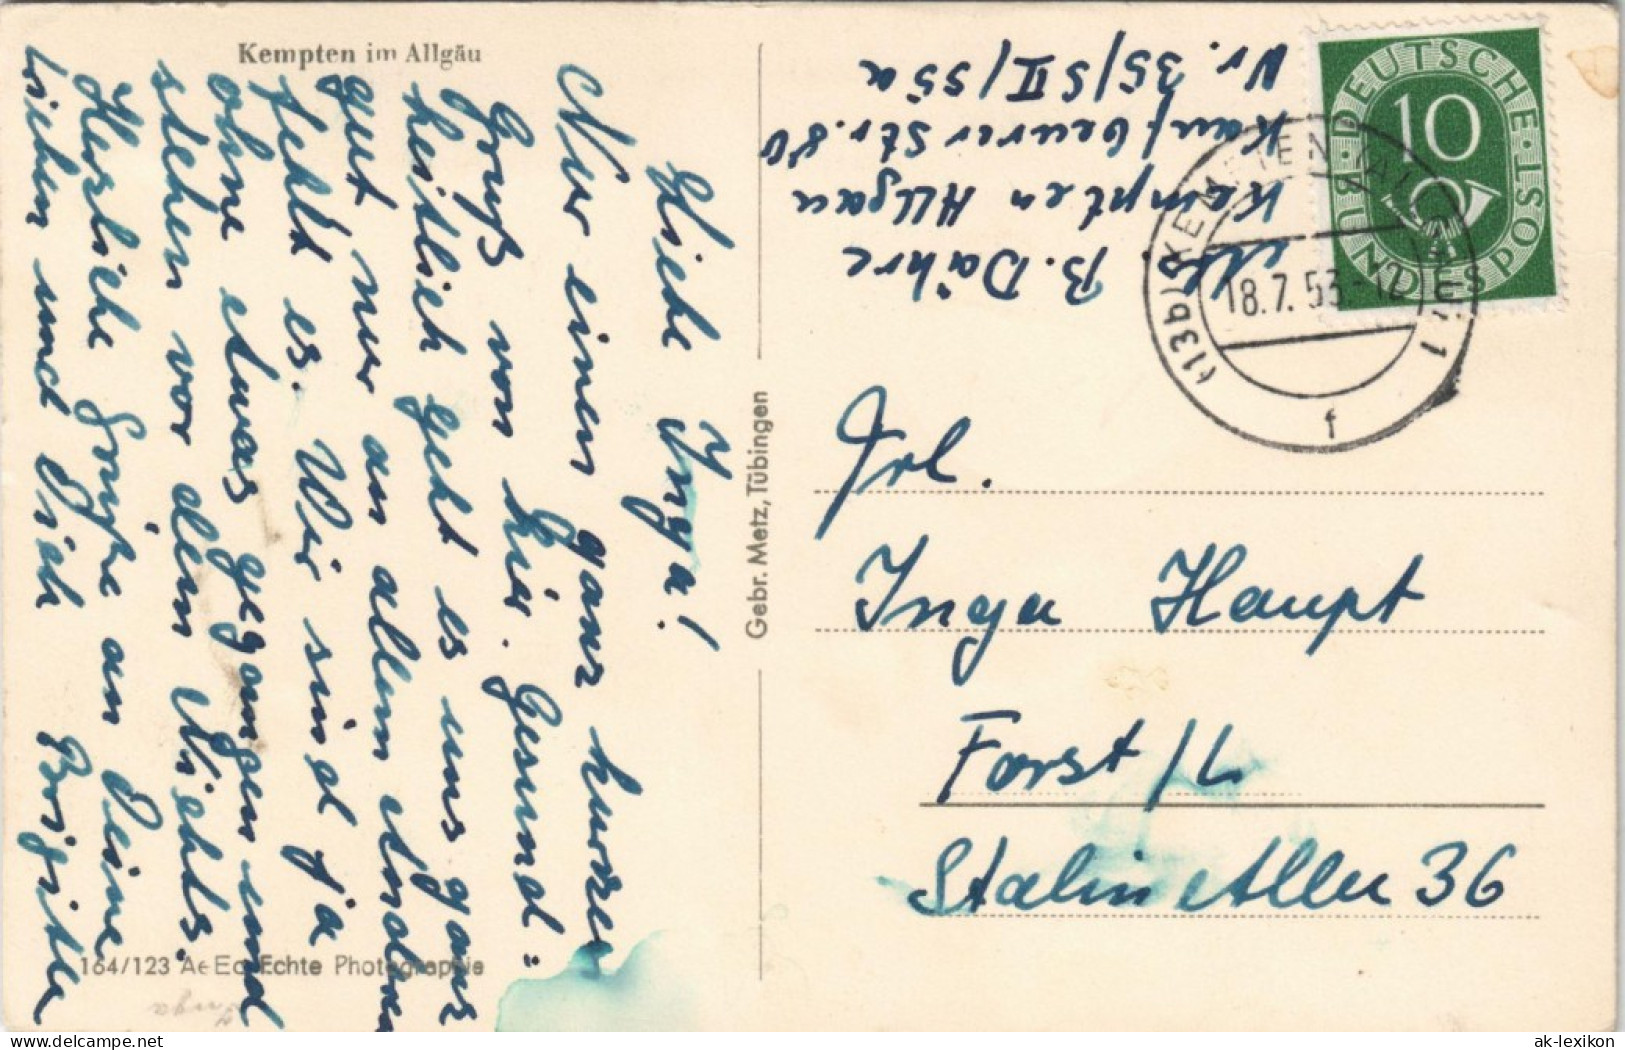 Kempten im Allgäu
Liebe Inga!
Nur einen ganz kurzen
Gruß von hier. Gesund=
heitlich geht es uns ganz
gut, nur an allem Andren
fehlt es. Wir sind ja
ohne etwas gegangen und
stehen vor dem Nichts.
Herzliche Grüße an Deine
Lieben und Dich Brigitte
164/123 Echte Photographie
Inga
Gebr. Metz, Tübingen
B. Dähre
Kempten Allgäu
Kaufbeurer Str. 80
Nr. 35/S II/55a
DEUTSCHE BUNDESPOST
10
(13b) KEMPTEN (ALLGÄU) 1
18.7.53.-12
f
Frl.
Inga Haupt
Forst/L
Stalin Allee 36
ak-lexikon